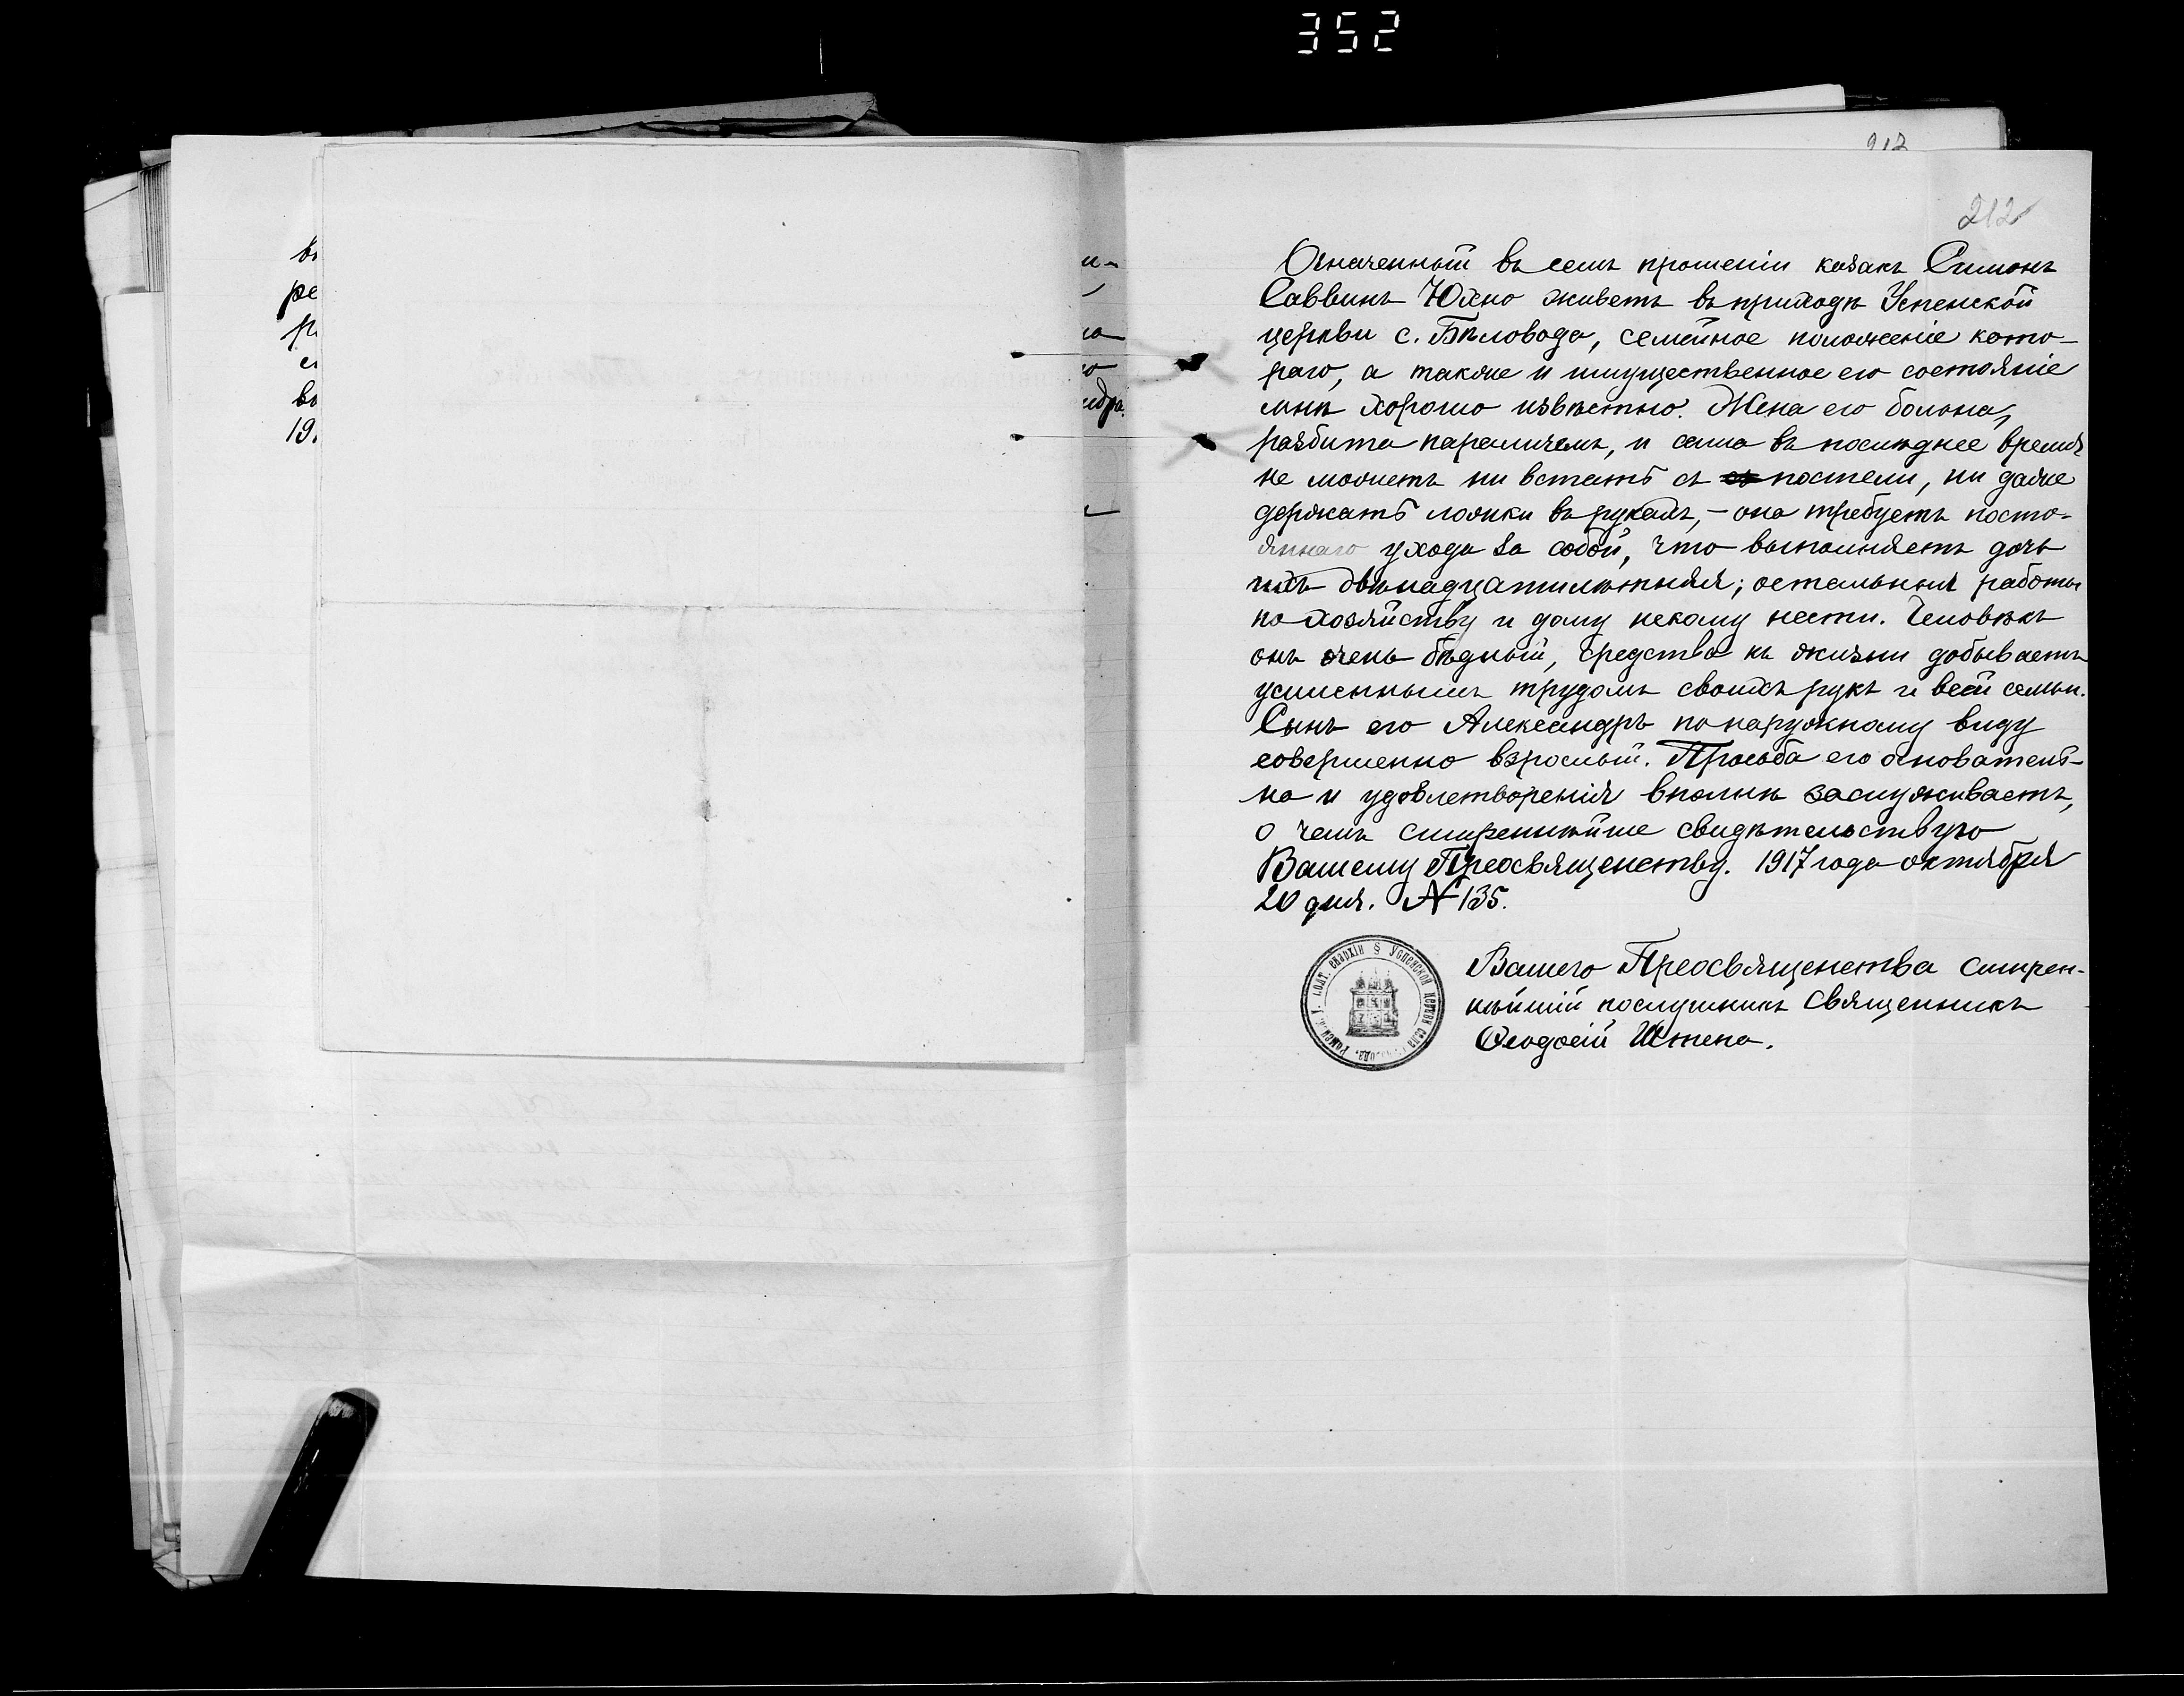 352
212
Означенный въ семъ прошеніи козакъ Симонъ
Саввинъ Юхно живетъ въ приходѣ Успенской
церкви с. Бѣловода, семейное положеніе кото-
раго, а также и имущественное его состояніе
мнѣ хорошо извѣстно. Жена его больна,
разбита параличемъ, и сама въ послѣднее время
не можетъ ни встать съ постели, ни даже
держать ложки въ рукахъ, - она требуетъ посто-
яннаго ухода за собой, что выполняетъ дочь
ихъ двѣнадцатилѣтняя; остальныя работы
по хозяйству и дому некому нести. Человѣкъ
онъ очень бѣдный, средства къ жизни добываетъ
усиленнымъ трудомъ своихъ рукъ и всей семьи.
Сынъ его Александръ по наружному виду
совершенно взрослый. Просьба его основатель-
на и удовлетворенія вполнѣ заслуживаетъ,
о чемъ смиреннѣйше свидѣтельствую
Вашему Преосвященству. 1917 года октября
20 дня. № 135.
Вашего Преосвященства смирен-
нѣйшій послушникъ священникъ
Ѳеодосій Штепа.
ре
во
19.
Полт. епархіи § Успенской церкви села Ромен. у.